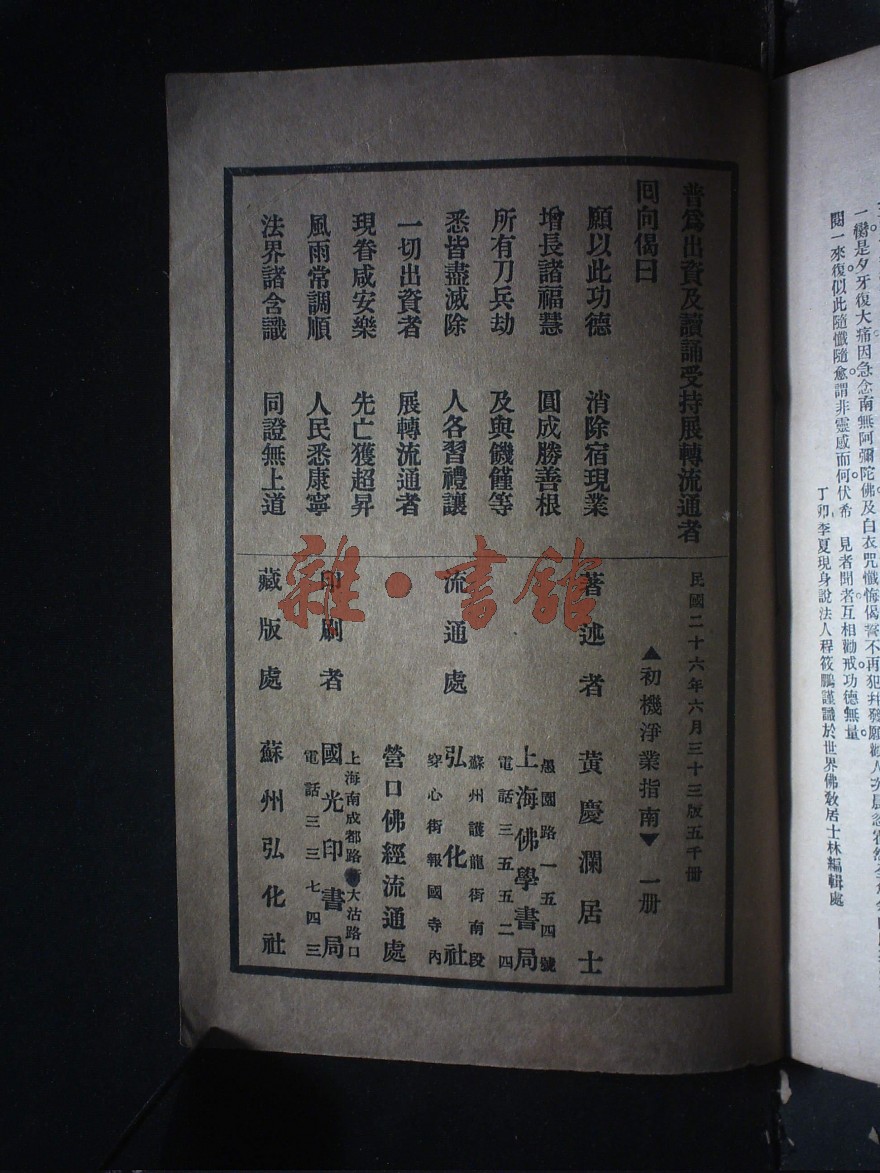 普爲出資及讀誦受持展轉流通者
回向偈曰
願以此功德　消除宿現業
增長諸福慧　圓成勝善根
所有刀兵劫　及與饑饉等
悉皆盡滅除　人各習禮讓
一切出資者　展轉流通者
現眷咸安樂　先亡獲超昇
風雨常調順　人民悉康寧
法界諸含識　同證無上道
民國二十六年六月三十三版五千冊
▲初機淨業指南▼　一册
著述者　黃慶瀾居士
愚園路一五四號
流通處　上海佛學書局
電話三五五二四
蘇州護龍街南段
弘化社
穿心街報國寺內
營口佛經流通處
上海南成都路
大沽路口
印刷者　國光印書局
電話三三七四三
藏版處　蘇州弘化社
雜·書館
一嚮是夕牙復大痛因急念南無阿彌陀佛及白衣咒懺悔偈誓不再犯幷發願勸人
閱一來復似此隨懺隨愈謂非靈感而何伏希　見者聞者互相勸戒功德無量
丁卯季夏現身說法人程筱鵬謹識於世界佛教居士林編輯處